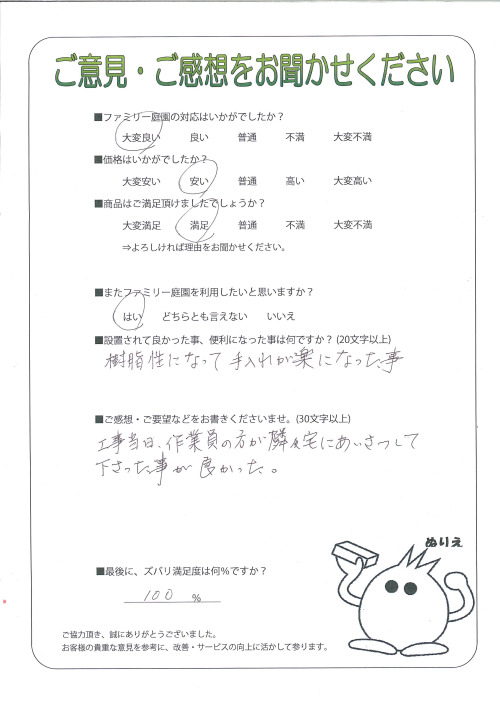 ご意見・ご感想をお聞かせください
■ファミリー庭園の対応はいかがでしたか？
大変良い 良い 普通 不満 大変不満
■価格はいかがでしたか？
大変安い 安い 普通 高い 大変高い
■商品はご満足頂けましたでしょうか？
大変満足 満足 普通 不満 大変不満
⇒よろしければ理由をお聞かせください。
■またファミリー庭園を利用したいと思いますか？
はい どちらとも言えない いいえ
■設置されて良かった事、便利になった事は何ですか？ (20文字以上)
樹脂性になって手入れが楽になった事
■ご感想・ご要望などをお書きくださいませ。(30文字以上)
工事当日、作業員の方が隣々宅にあいさつして
下さった事が良かった。
ぬりえ
■最後に、ズバリ満足度は何％ですか？
100 %
ご協力頂き、誠にありがとうございました。
お客様の貴重な意見を参考に、改善・サービスの向上に活かして参ります。